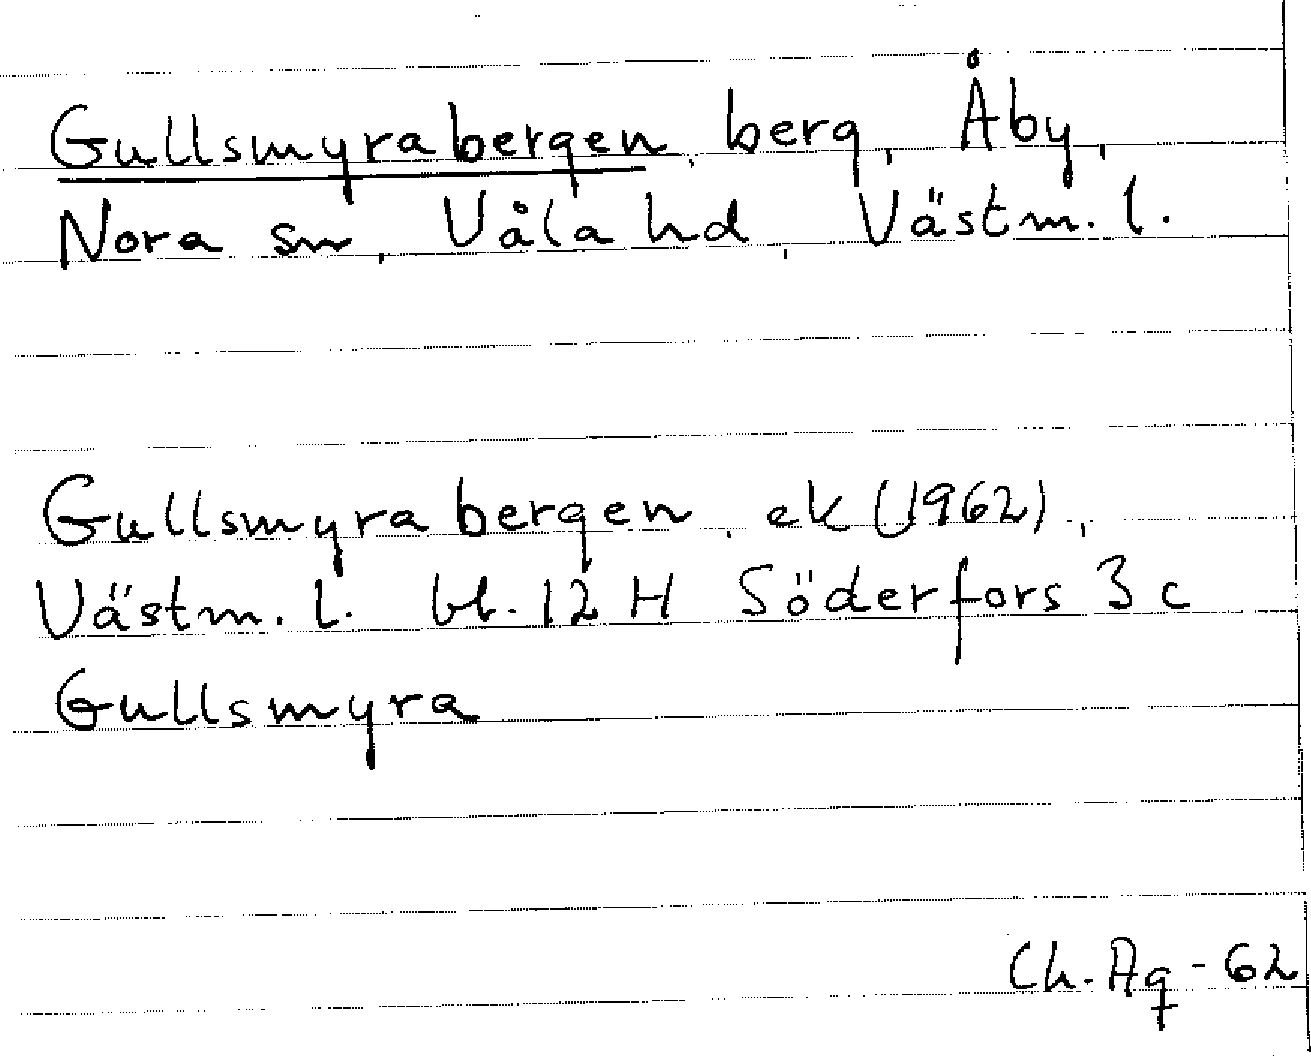 Gullsmyrabergen, berg, Åby,
Nora sn, Våla hd, Västm. l.
Gullsmyrabergen, ek (1962),
Västm. l. bl. 12 H Söderfors 3 c
Gullsmyra
Ch. Aq - 62